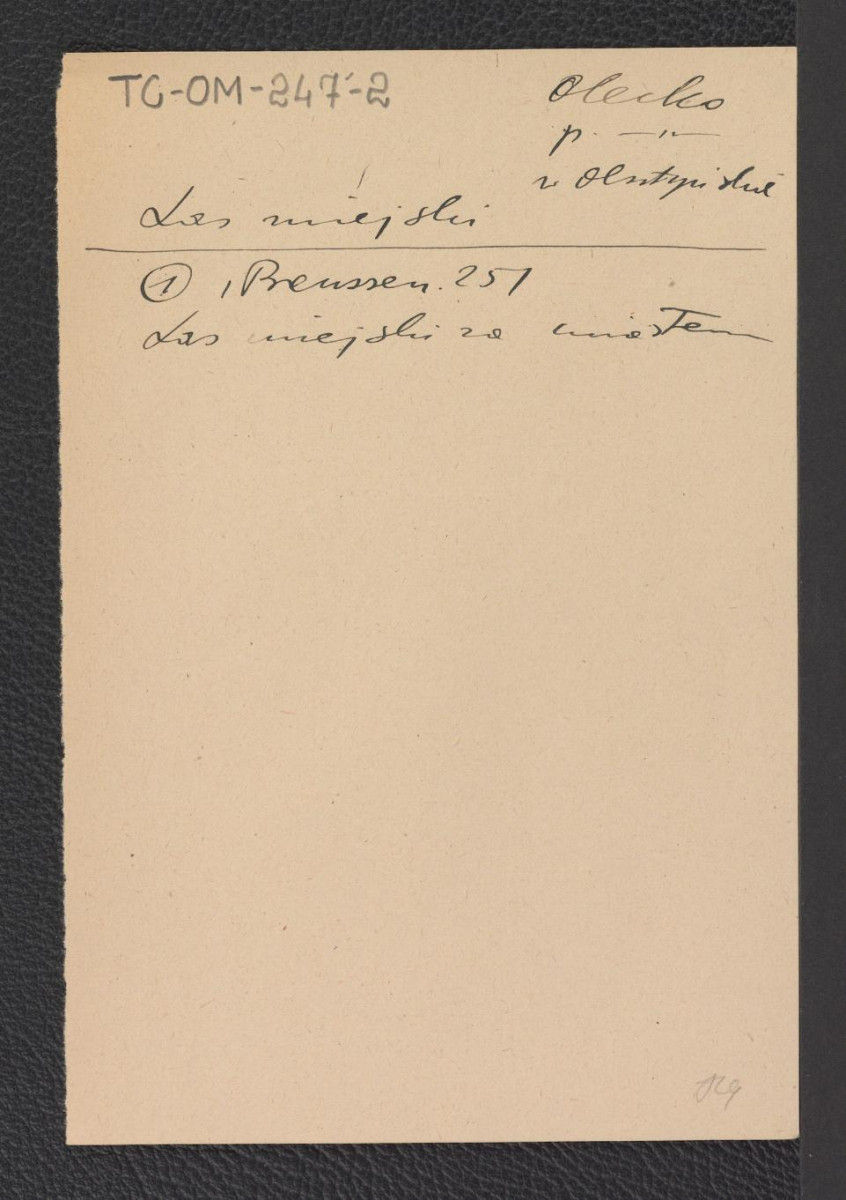 TG-OM-247-2
Olecko
p. —"—
w Olsztyńskie
Las miejski
① Preussen. 251
Las miejski za miastem